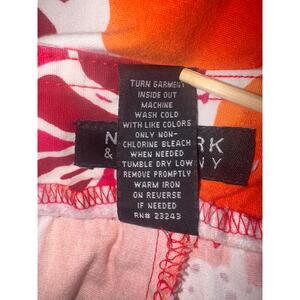 TURN GARMENT
INSIDE OUT
MACHINE
WASH COLD
WITH LIKE COLORS
ONLY NON-
CHLORINE BLEACH
WHEN NEEDED
TUMBLE DRY LOW
REMOVE PROMPTLY
WARM IRON
ON REVERSE
IF NEEDED
RN# 23243
N RK
& NY